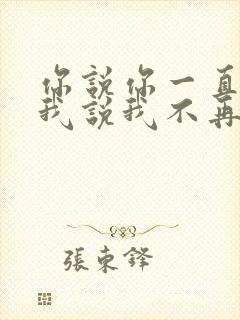 你說你一直
我說我不再
張東鋒